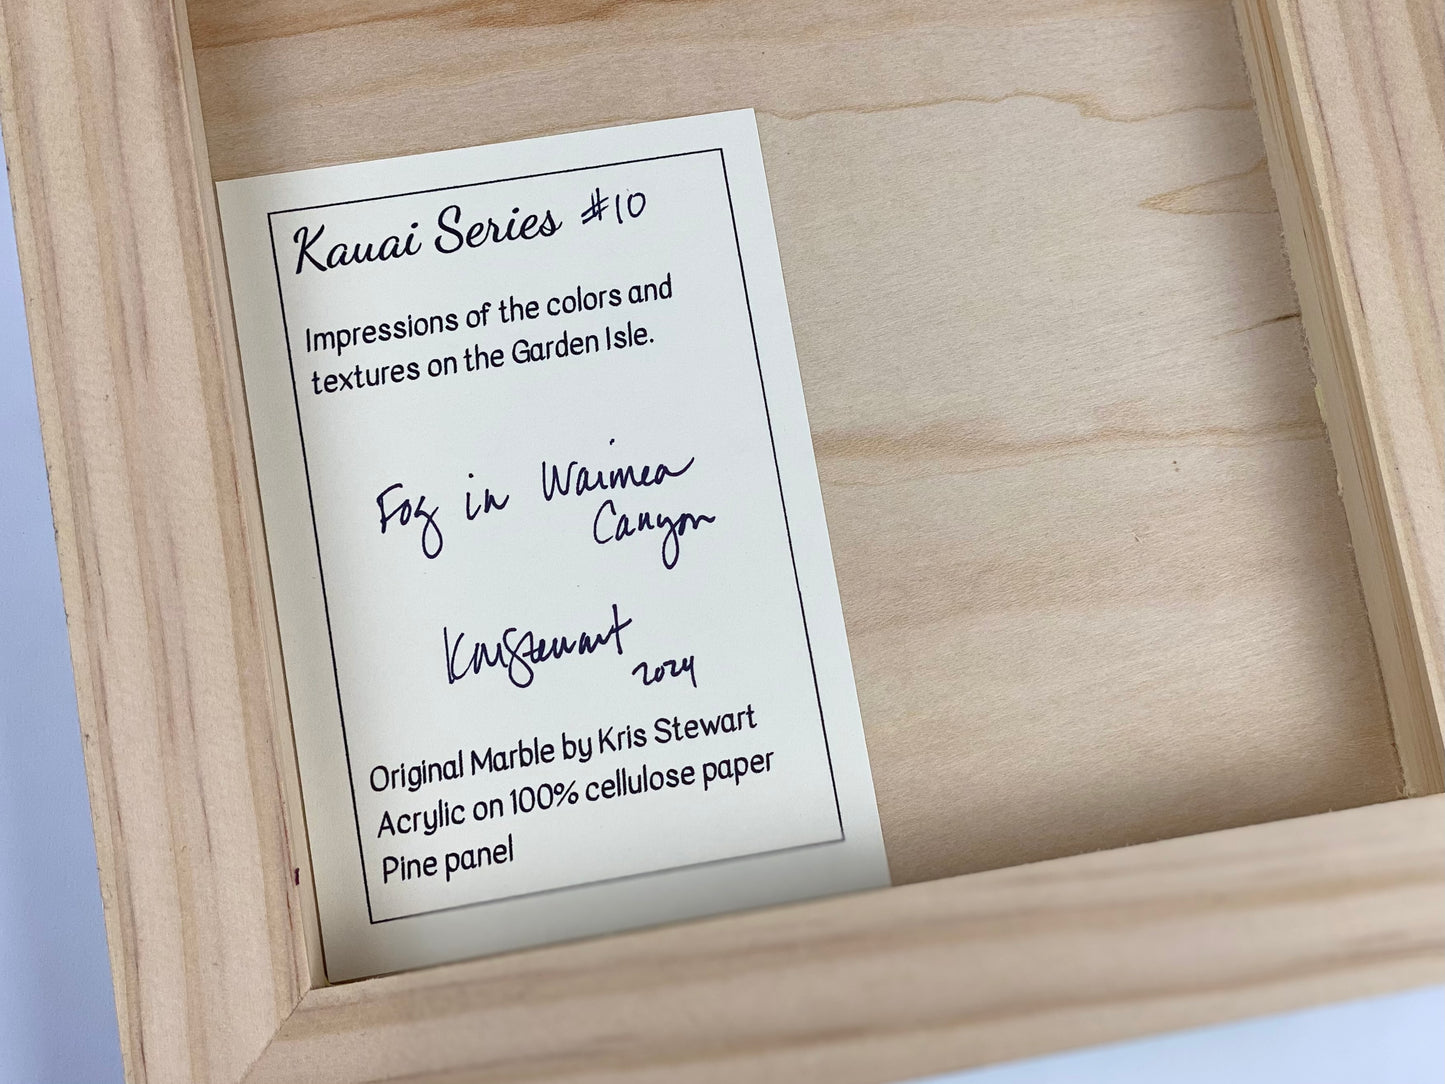 Kauai Series #10
Impressions of the colors and
textures on the Garden Isle.
Fog in Waimea
Canyon
Kris Stewart
2024
Original Marble by Kris Stewart
Acrylic on 100% cellulose paper
Pine panel